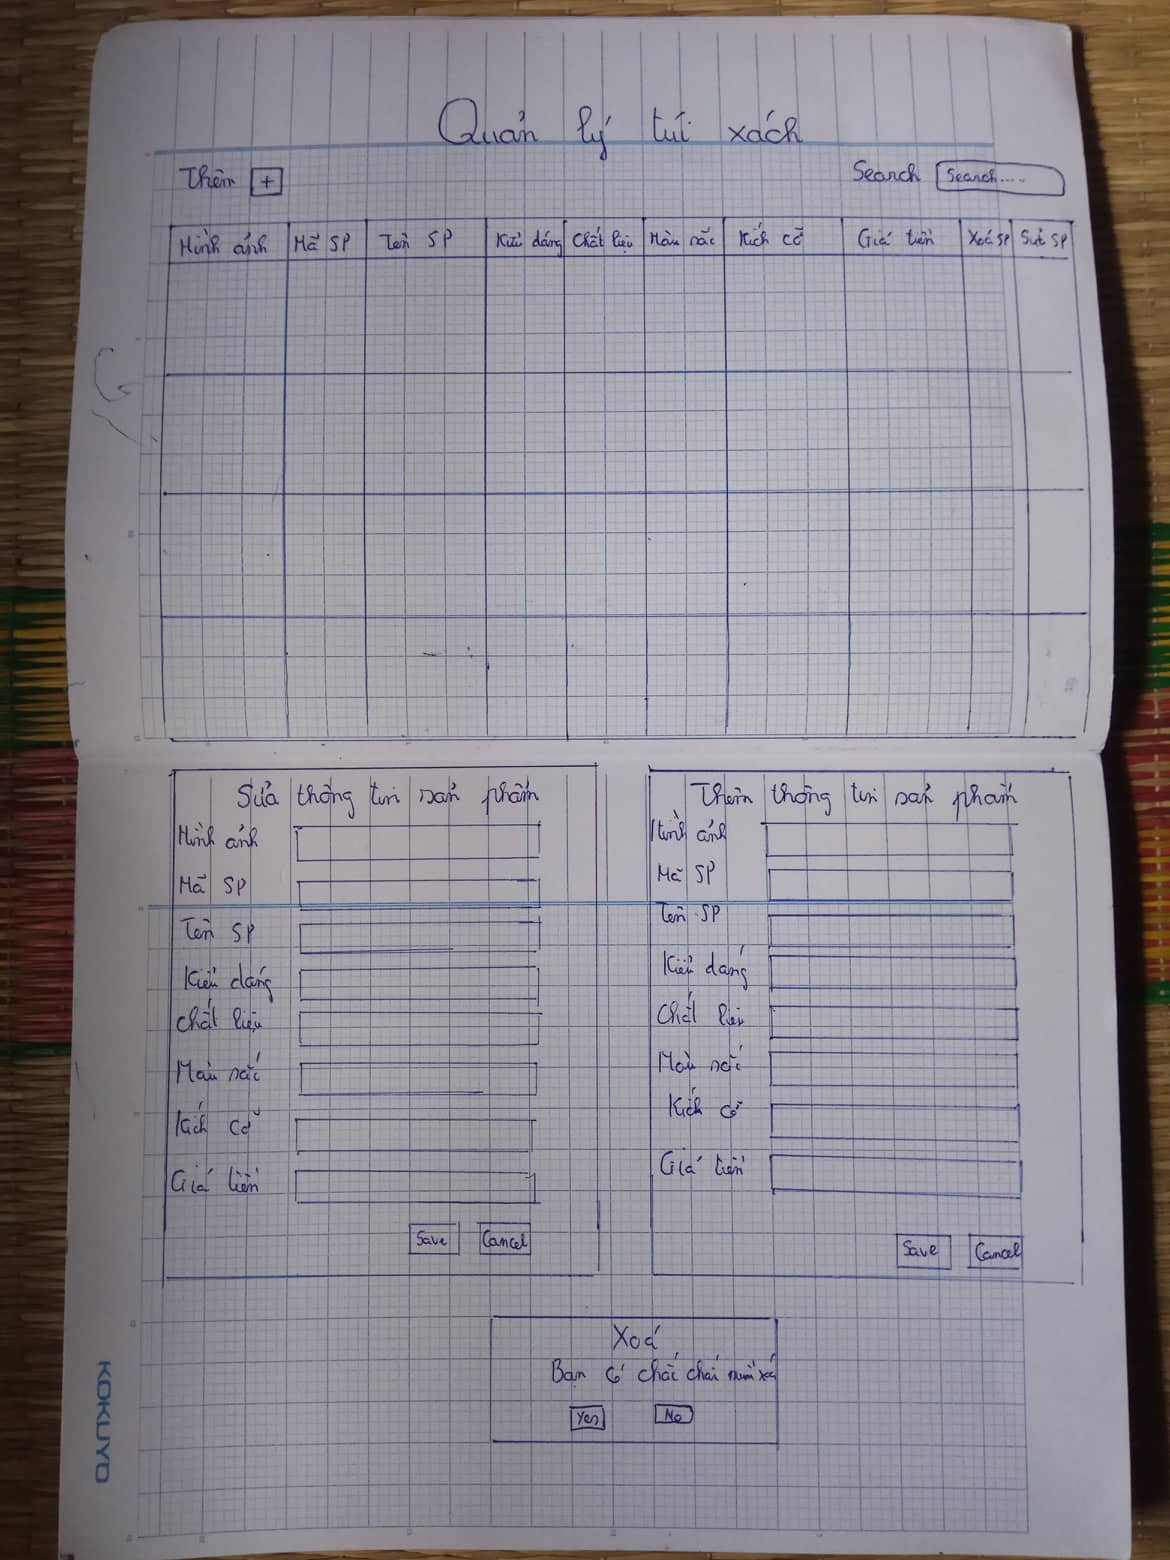 Quản lý túi xách
Thêm +
Search Search....
Hình ảnh Mã SP Tên SP Kiểu dáng Chất liệu Màu sắc Kích cỡ Giá tiền Xoá SP Sửa SP
Sửa thông tin sản phẩm
Hình ảnh
Mã SP
Tên SP
Kiểu dáng
Chất liệu
Màu sắc
Kích cỡ
Giá tiền
Save Cancel
Thêm thông tin sản phẩm
Hình ảnh
Mã SP
Tên SP
Kiểu dáng
Chất liệu
Màu sắc
Kích cỡ
Giá tiền
Save Cancel
Xoá
Bạn có chắc chắn muốn xoá
Yes No
KOKUYO